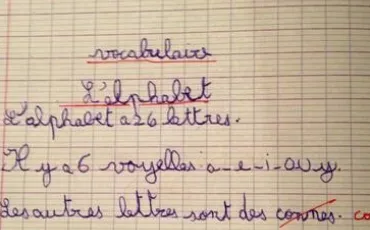 vocabulaire
L'alphabet
L'alphabet a 26 lettres.
Il y a 6 voyelles a-e-i-o u y.
Les autres lettres sont des connes. co